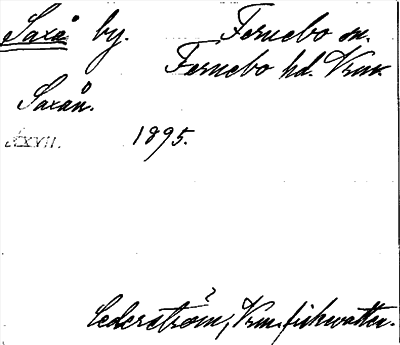 Saxå by. Fernebo sn.
Fernebo hd. Vrml.
Saxån.
XXVII. 1895.
Cederström, Vrm. fiskvatten.